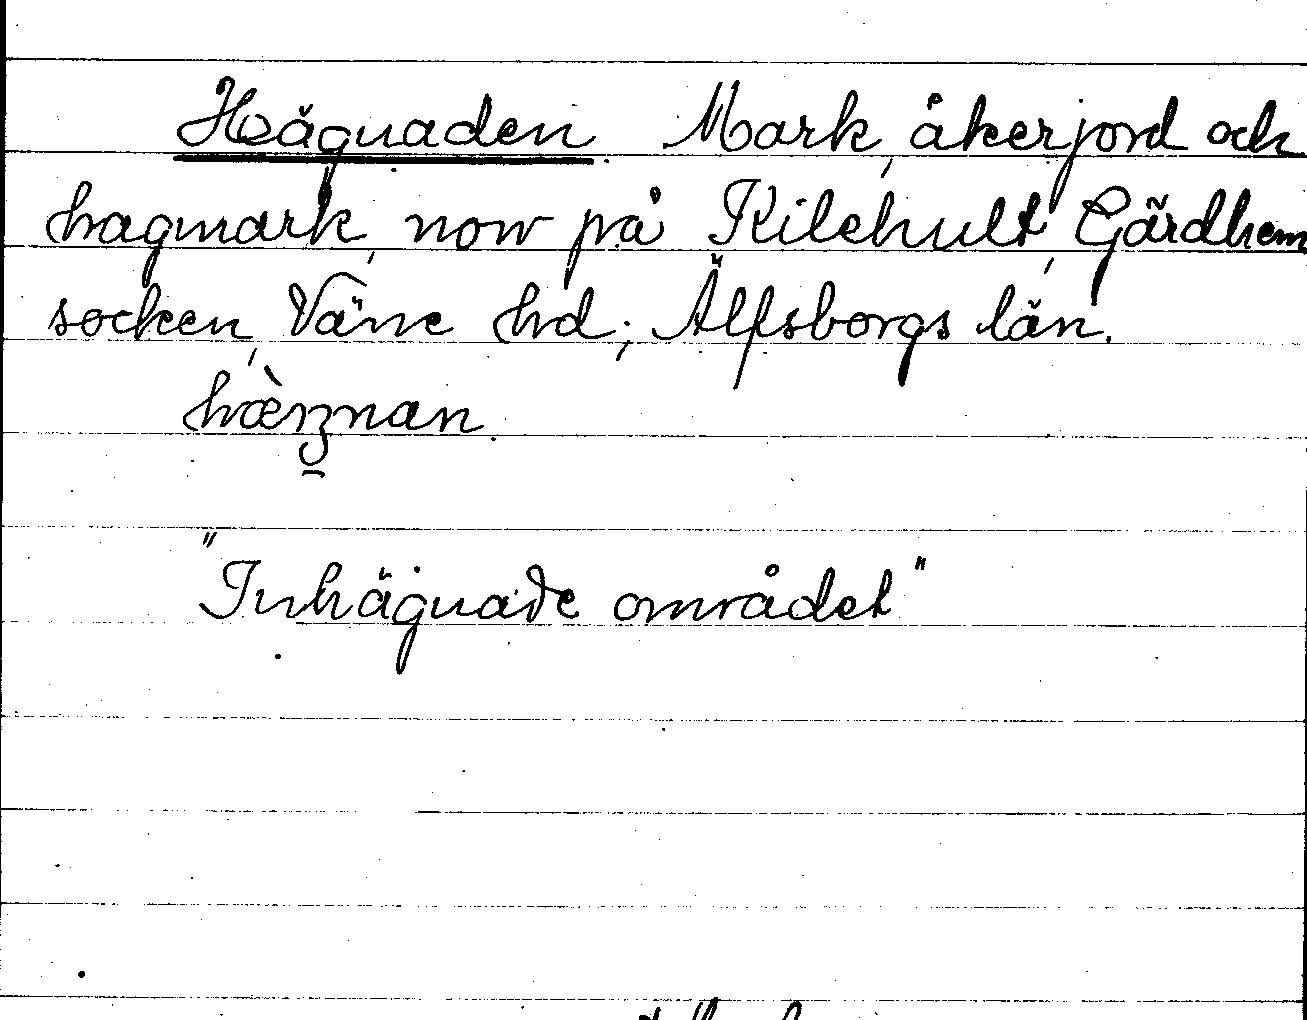 Hägnaden Mark, åkerjord och
hagmark, norr på Kilehult, Gärdhem
socken, Väne hd; Älfsborgs län.
"Inhägnade området"